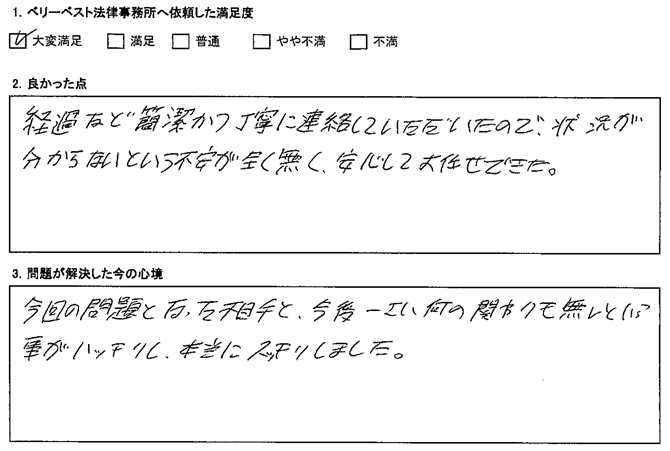 1. ベリーベスト法律事務所へ依頼した満足度
大変満足 満足 普通 やや不満 不満
2. 良かった点
経過など簡潔かつ丁寧に連絡していただいたので、状況が
分からないという不安が全く無く、安心してお任せできた。
3. 問題が解決した今の心境
今回の問題となった相手と、今後一さい何の関わりも無いという
事がハッキリし、本当にスッキリしました。